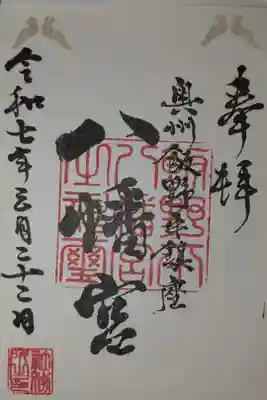 奉拝
奥州飯野平鎮座
八幡宮
令和七年三月二十二日